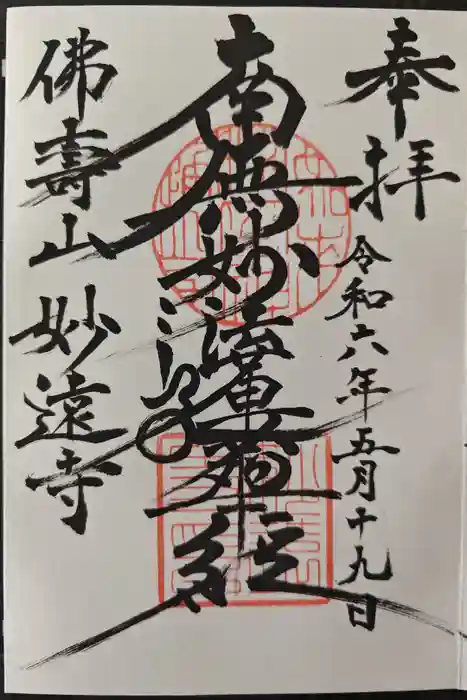 奉拝
令和六年五月十九日
南無妙法蓮華経
佛壽山 妙遠寺